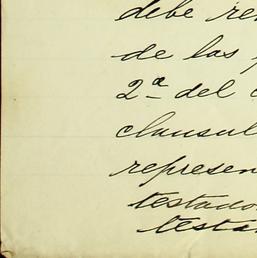 debe re
de las
2ª del
clausul
represen
testado
testa